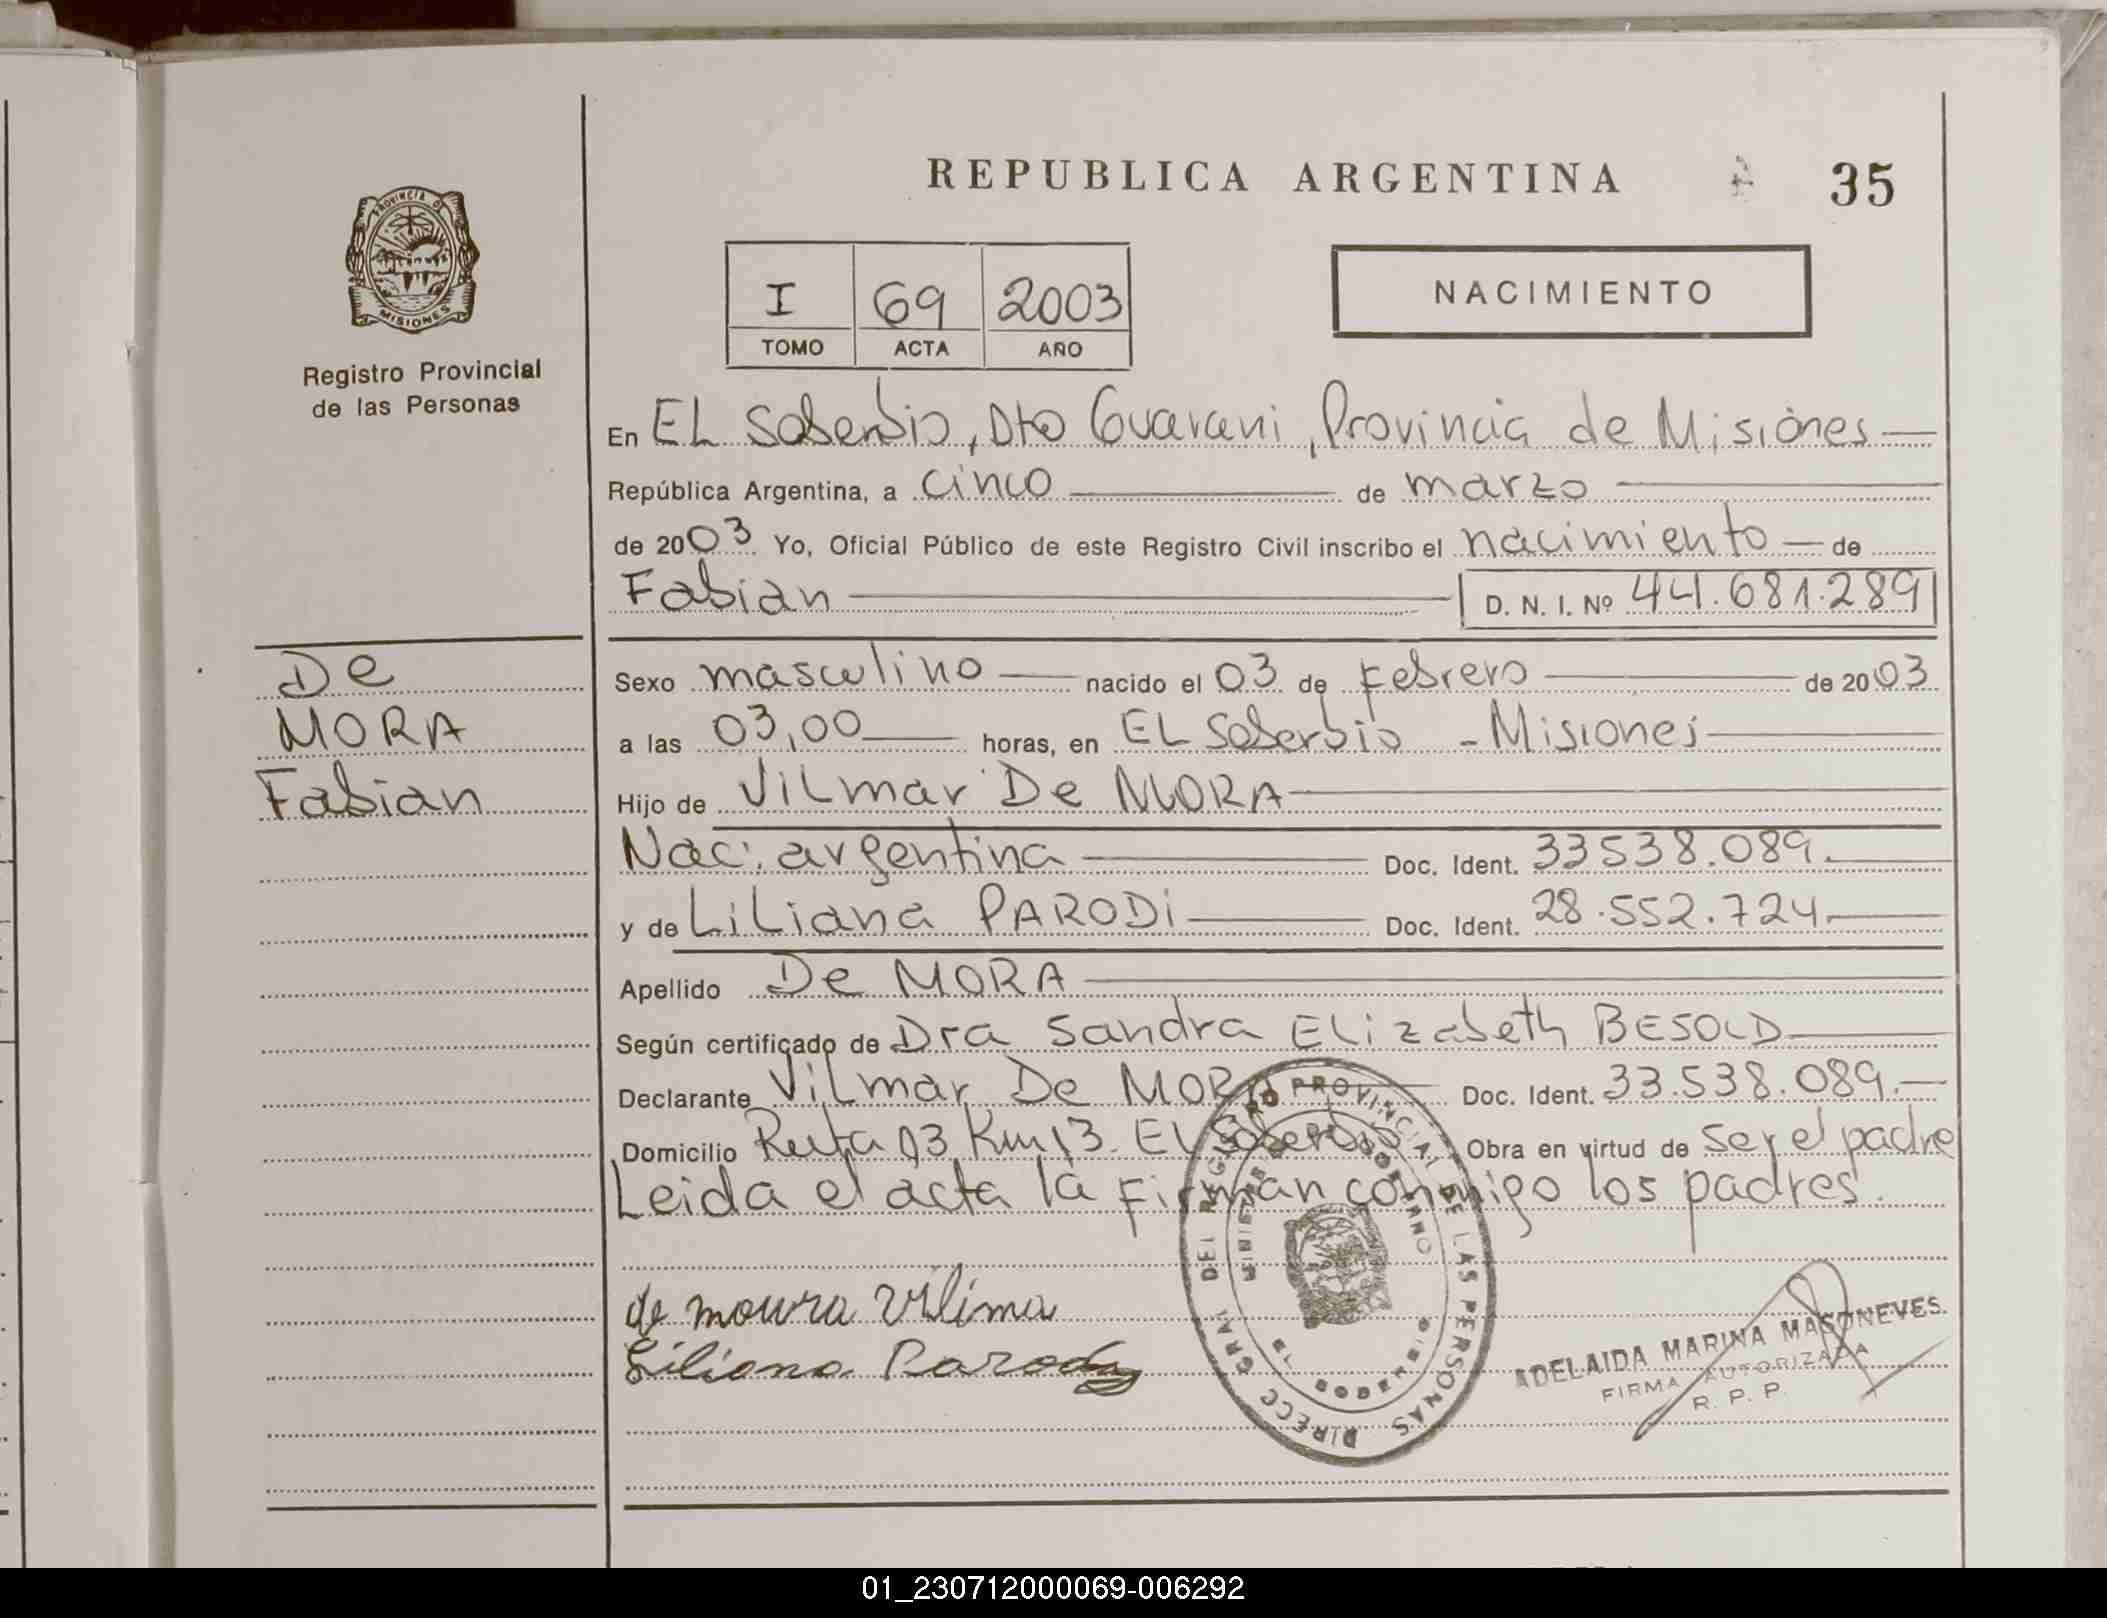 REPUBLICA ARGENTINA
35
PROVINCIA DE
MISIONES
Registro Provincial
de las Personas
I 69 2003
TOMO ACTA AÑO
NACIMIENTO
En EL Soberbio, Dto Guarani, Provincia de Misiones
República Argentina, a cinco de marzo
de 2003 Yo, Oficial Público de este Registro Civil inscribo el nacimiento de
Fabian D. N. I. Nº 44.681.289
De
MORA
Fabian
Sexo masculino nacido el 03 de Febrero de 2003
a las 03,00 horas, en EL Soberbio - Misiones
Hijo de Vilmar De MORA
Nac: argentina Doc. Ident. 33538.089.
y de Liliana PARODi Doc. Ident. 28.552.724.
Apellido De MORA
Según certificado de Dra Sandra Elizabeth BESOLD
Declarante Vilmar De MORA Doc. Ident. 33.538.089.
Domicilio Ruta 13 Km 13. El Soberbio Obra en virtud de ser el padre
Leida el acta la firman conmigo los padres.
de moura vilima
Liliana Parodi
DIRECC GRAL DEL REGISTRO PROVINCIAL DE LAS PERSONAS
EL SOBERBIO
ADELAIDA MARINA MASONEVES
FIRMA AUTORIZADA
R. P. P.
01_230712000069-006292